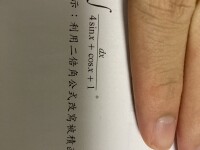 ∫ dx / (4 sin x + cos x + 1) 。
示：利用二倍角公式改寫被積